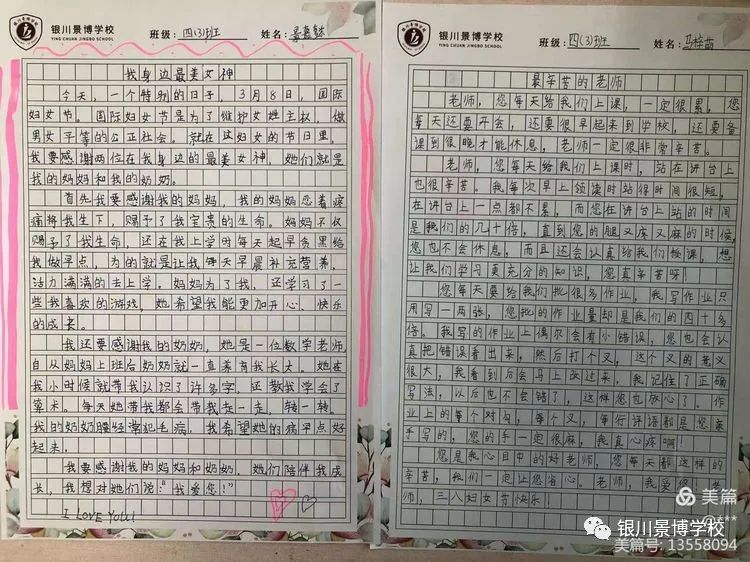 银川景博学校
YING CHUAN JINGBO SCHOOL
班级：四(3)班
姓名：
我身边最美女神
今天，一个特别的日子，3月8日，国际
妇女节。国际妇女节是为了维护女性主权，做
男女平等的公正社会。就在这妇女的节日里，
我要感谢两位在我身边的最美女神，她们就是
我的妈妈和我的奶奶。
首先我要感谢我的妈妈，我的妈妈忍着疼
痛将我生下，赐予了我宝贵的生命。妈妈不仅
赐予了我生命，还在我上学时每天起早贪黑给
我做早点，为的就是让我每天早晨补充营养，
活力满满的去上学。妈妈为了我，还学习了一
些我喜欢的游戏，她希望我能更加开心、快乐
的成长。
我还要感谢我的奶奶，她是一位数学老师，
自从妈妈上班后奶奶就一直养育我长大。她在
我小时候就带我认识了许多字，还教我学会了
算术。每天她带我都会带我走一走，转一转。
我的奶奶腰经常犯毛病，我希望她的病早点好
起来。
我要感谢我的妈妈和奶奶，她们陪伴我成
长，我想对她们说："我爱您！"
I LOVE YOU!
银川景博学校
YING CHUAN JINGBO SCHOOL
班级：四(3)班
姓名：马梓萌
最辛苦的老师
老师，您每天给我们上课，一定很累。您
每天还要开会，还要很早起来到学校，还要备
课到很晚才能休息，老师一定很非常辛苦。
老师，您每天给我们上课时，站在讲台上
也很辛苦。我每次早上领读时站得时间很短，
在讲台上一点都不累，而您在讲台上站的时间
是我们的几十倍，直到您的腿又疼又麻的时候，
您也不会休息，而且还会认真给我们授课，想
让我们学习更充分的知识，您真辛苦呀！
您每天要给我们批很多作业，我写作业只
用写一两张，您批的作业量却是我们的四十多
倍。我写的作业上偶尔会有小错误，您也会认
真把错误看出来，然后打个叉，这个叉的意义
很大，我看到后会马上改过来，我记住了正确
写法，以后也不会错了，这样您也放心了。作
业上的每个对勾，每个叉，每行评语都是您亲
手写的，您的手一定很麻，我真心疼啊！
您是我心目中的好老师，您每天都这样的
辛苦，我们一定让您省心。老师，我爱您！老
师，三八妇女节快乐！
美篇
银川景博学校
美篇号: 13558094